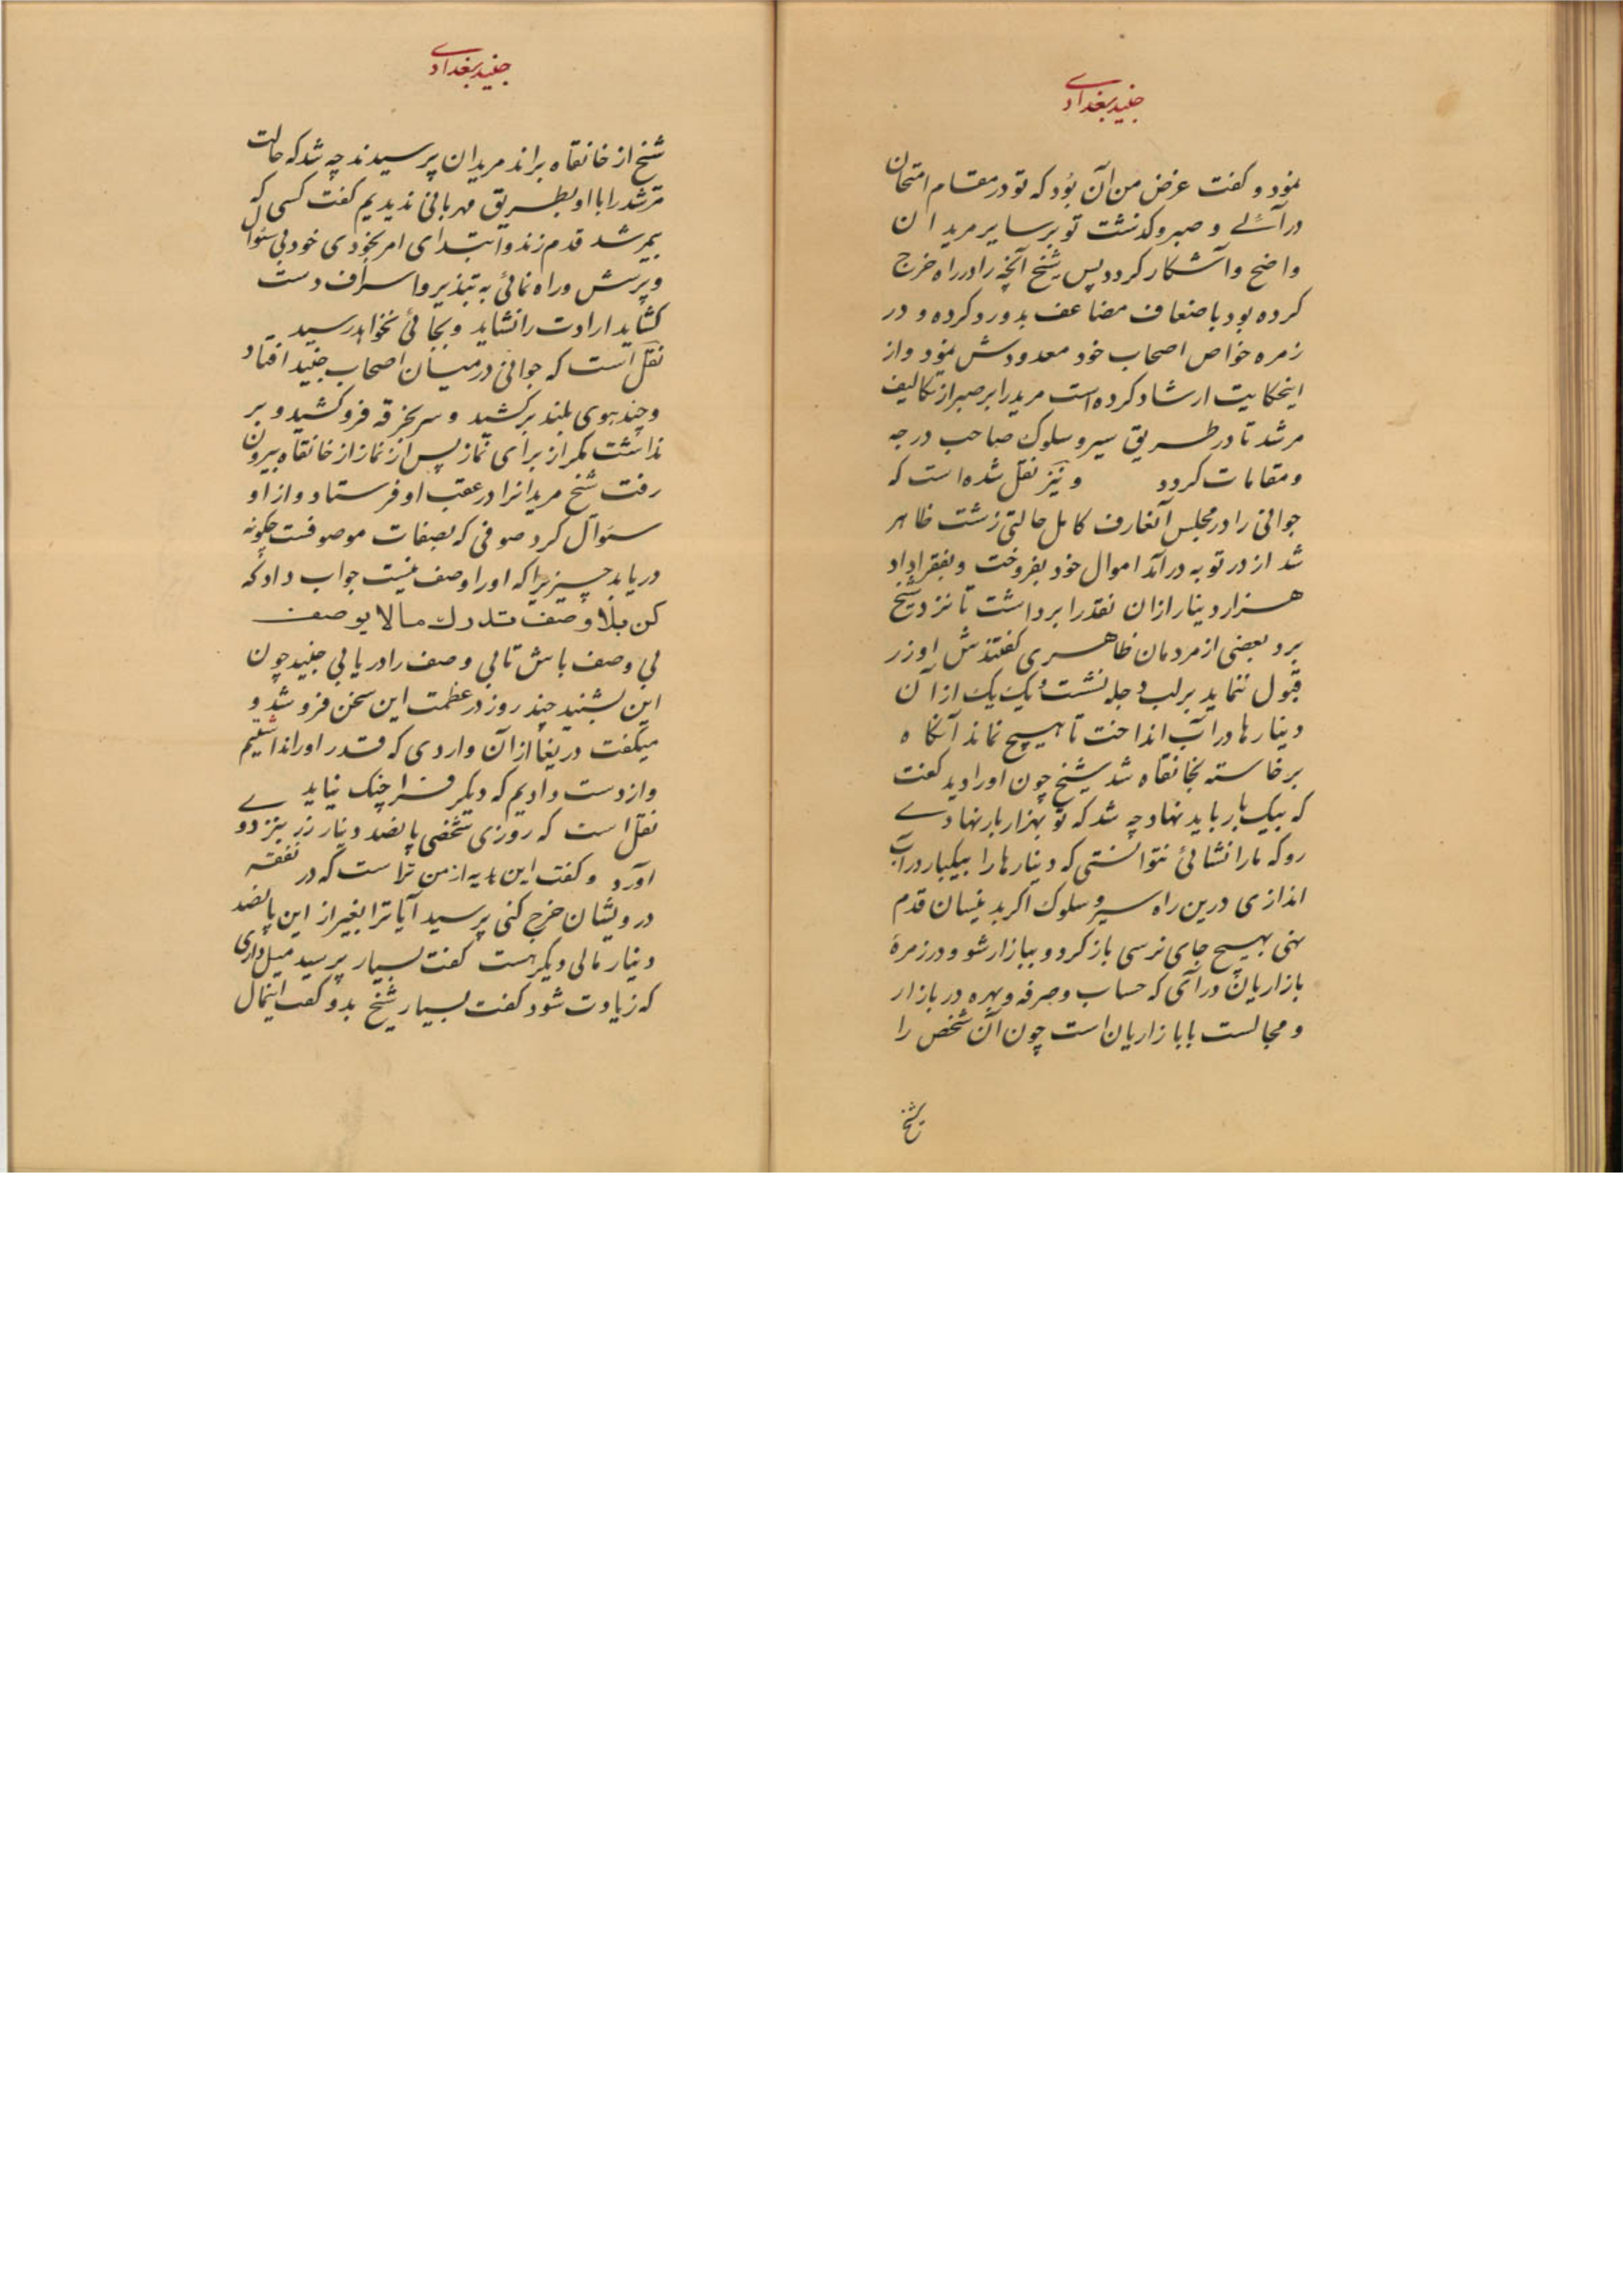 جنید بغدادے
نمود و کفت عرض من آن بُود که تو در مقام امتحان
درآئے و صبر و کذشت تو بر سایر مریدان
واضح و آشکار کردد پس شیخ آنچه را در راه خرج
کرده بود باضعاف مضاعف بدو رد کرده و در
زمره خواص اصحاب خود معدودش نمود و از
اینحکایت ارشاد کرده است مرید را بر صبر از تکالیف
مرشد تا در طریق سیر و سلوک صاحب درجه
و مقامات کردد و نیز نقل شده است که
جوانی را در مجلس آنعارف کامل حالتی زشت ظاهر
شد از در توبه در آمد اموال خود بفروخت و بفقرا داد
هزار دینار ازان نقد را برداشت تا نزد شیخ
برد بعضی از مردمان ظاهری کفتندش او زر
قبول ننماید بر لب دجله نشست و یک یک از آن
دینار ها در آب انداخت تا هیچ نماند آنکاه
برخاسته بخانقاه شد شیخ چون او را دید کفت
که بیک بار باید نهاد چه شد که تو بهزار بار نهادے
رو که ما را نشائی نتوانستی که دینار ها را بیکبار در آب
اندازی درین راه سیر و سلوک اکر بدینسان قدم
نهی بهیچ جای نرسی باز کرد و ببازار شو و در زمرهٔ
بازاریان در آی که حساب و صرفه و بهره در بازار
و مجالست با بازاریان است چون آن شخص را
شیخ
جنید بغدادے
شیخ از خانقاه براند مریدان پرسیدند چه شد که حالت
مرشد را با او بطریق مهربانی ندیدیم کفت کسی که
بمرشد قدم زند و ابتدای امر بخودی خود بی سئوال
و پرسش و راه نمائی به تبذیر و اسراف دست
کشاید ارادت را نشاید و بجائی نخواهد رسید
نقل است که جوانی در میان اصحاب جنید افتاد
و چند هوی بلند برکشید و سر بخرقه فرو کشید و بر
نداشت مکر از برای نماز پس از نماز از خانقاه بیرون
رفت شیخ مریدانرا در عقب او فرستاد و از او
سئوال کرد صوفی که بصفات موصوفست چکونه
دریابد چیزیرا که او را وصف نیست جواب داد که
کن بلا وصف تدرك ما لا یوصف
بی وصف باش تا بی وصف را دریابی جنید چون
این بشنید چند روز در عظمت این سخن فرو شد و
میکفت دریغا از آن واردی که قدر او را نداشتیم
و از دست دادیم که دیکر فرا چنک نیایدے
نقل است که روزی شخصی پانصد دینار زر بنزد او
آورد و کفت این هدیه از من ترا است که در نفقه
درویشان خرج کنی پرسید آیا ترا بغیر از این پانصد
دینار مالی دیکر هست کفت بسیار پرسید میل داری
که زیادت شود کفت بسیار شیخ بدو کفت اینمال